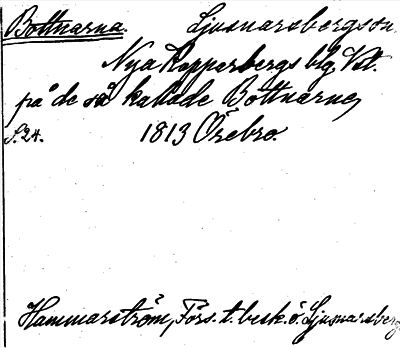 Bottnarna. Ljusnarsbergs sn.
Nya Kopparbergs blg Vst.
på de så kallade Bottnarne,
S. 24. 1813 Örebro.
Hammarström, Förs. t. besk. ö. Ljusnarsberg